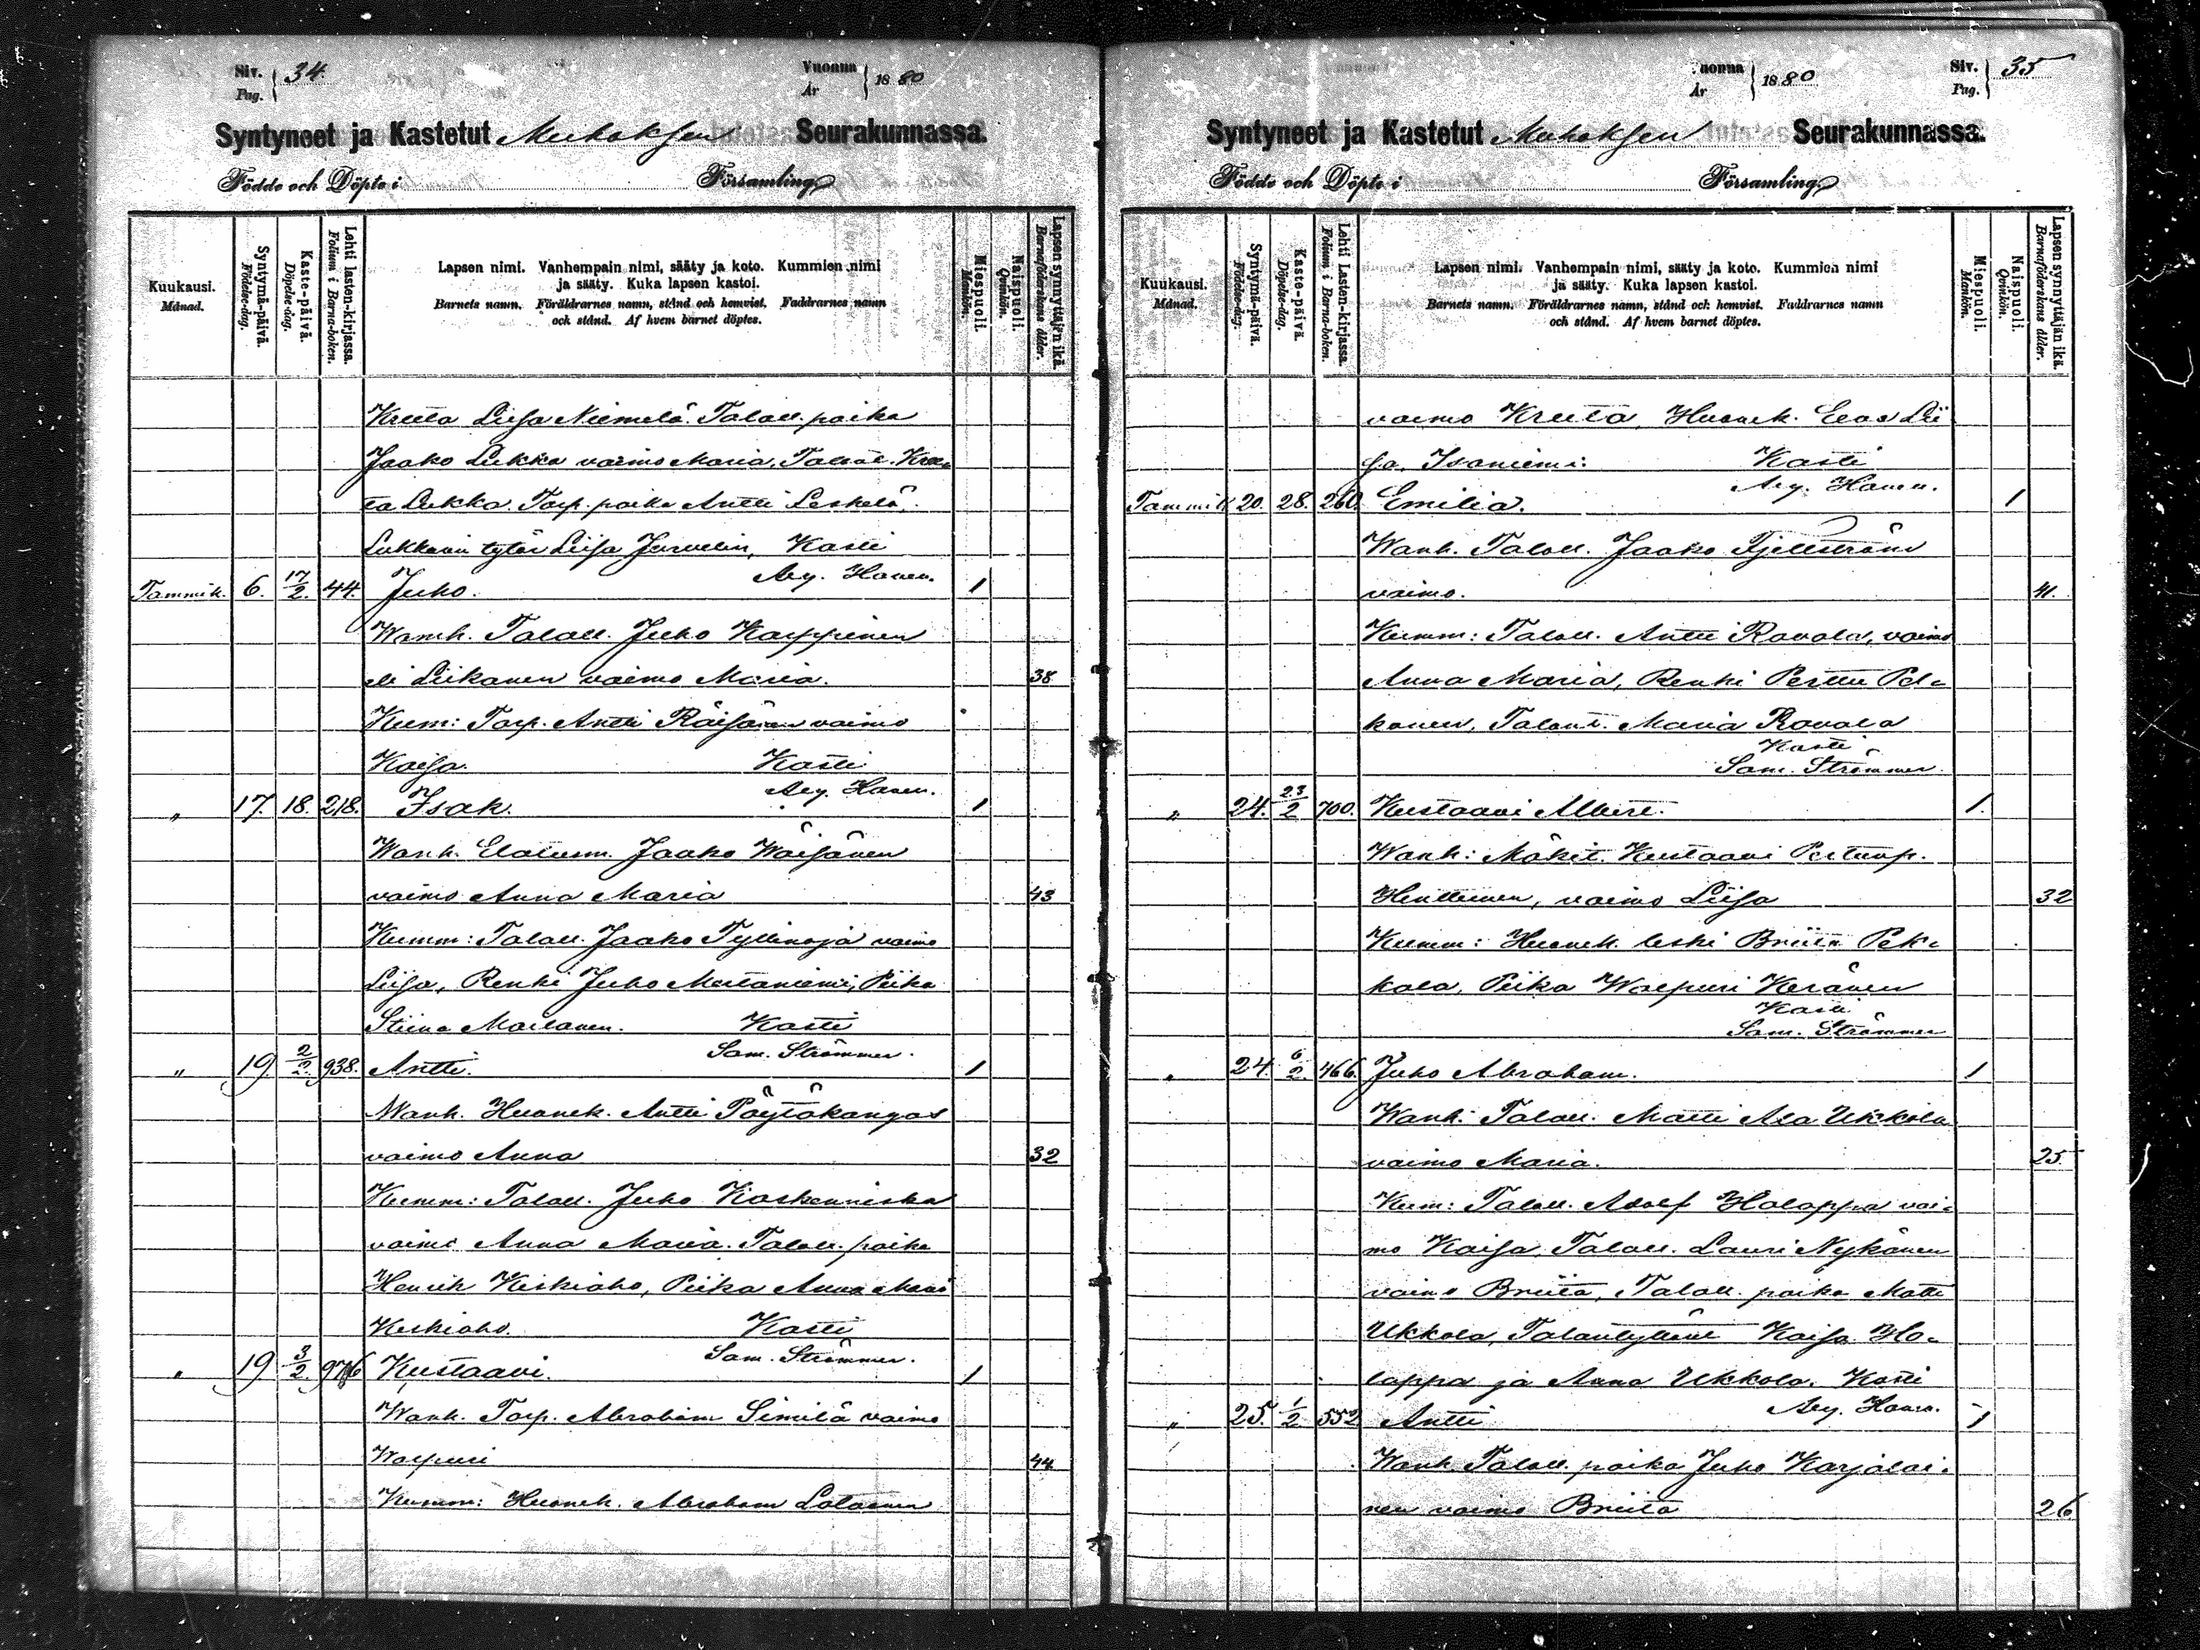 Siv. 34.
Pag.
Vuonna 1880
År
Syntyneet ja Kastetut Muhoksen Seurakunnassa.
Födde och Döpte i Församling
Kuukausi.
Månad.
Syntymä-päivä.
Födelse-dag.
Kaste-päivä.
Döpelse-dag.
Lehti lasten-kirjassa.
Folium i Barna-boken.
Lapsen nimi. Vanhempain nimi, sääty ja koto. Kummien nimi
ja sääty. Kuka lapsen kastoi.
Barnets namn. Föräldrarnes namn, stånd och hemvist. Faddrarnes namn
och stånd. Af hvem barnet döptes.
Miespuoli.
Mankön.
Naispuoli.
Qvinkön.
Lapsen synnyttäjän ikä.
Barnaföderskans ålder.
Kreeta Liisa Niemelä. Taloll. poika
Jaako Lukka vaimo Maria, Talont. Kree-
ta Lukka. Torp. poika Antti Leskelä,
Lukkarin tytär Liisa Jurvelin, Kasti
Aug. Haven.
Tammik. 6. 17/2. 44. Juho. 1
Wanh. Taloll. Juho Karppinen
eli Liikanen vaimo Maria. 38
Kum: Torp. Antti Räisänen vaimo
Kaisa. Kasti
Aug. Haven.
„ 17. 18. 218. Isak. 1
Wanh. Elatusm. Jaako Wäisänen
vaimo Anna Maria 43
Kumm: Taloll. Jaako Tyllinoja vaimo
Liisa, Renki Juho Mustaniemi, Piika
Stiina Moilanen. Kasti
Sam. Strömmer.
„ 19. 2/2. 938. Antti. 1
Wanh. Huonek. Antti Pöytäkangas
vaimo Anna 32
Kumm: Taloll. Juho Koskenniska
vaimo Anna Maria. Taloll. poika
Henrik Keskiaho, Piika Anna Maria
Keskiaho. Kasti
Sam. Strömmer.
„ 19 3/2. 976 Kustaavi. 1
Wanh. Torp. Abraham Similä vaimo
Walpuri 44
Kumm: Huonek. Abraham Lotanen
Vuonna 1880
År
Siv. 35
Pag.
Syntyneet ja Kastetut Muhoksen Seurakunnassa.
Födde och Döpte i Församling
Kuukausi.
Månad.
Syntymä-päivä.
Födelse-dag.
Kaste-päivä.
Döpelse-dag.
Lehti Lasten-kirjassa.
Folium i Barna-boken.
Lapsen nimi. Vanhempain nimi, sääty ja koto. Kummien nimi
ja sääty. Kuka lapsen kastoi.
Barnets namn. Föräldrarnes namn, stånd och hemvist. Faddrarnes namn
och stånd. Af hvem barnet döptes.
Miespuoli.
Mankön.
Naispuoli.
Qvinkön.
Lapsen synnyttäjän ikä.
Barnaföderskans ålder.
vaimo Kreeta, Huonek. Eeva Lii-
sa, Isoniemi: Kasti
Aug. Haven.
Tammik 20. 28. 260. Emilia. 1
Wanh. Taloll. Jaako Fjellström
vaimo. 41.
Kumm: Taloll. Antti Rovola, vaimo
Anna Maria, Renki Perttu Pel-
konen, Talont. Maria Rovola
Kasti
Sam. Strömmer.
„ 24. 23/2 700. Kustaavi Albert. 1.
Wanh: Mäkit. Kustaavi Pertunp.
Henttunen, vaimo Liisa 32
Kumm: Huonek. leski Briita Pek-
kala, Piika Walpuri Keränen
Kasti
Sam. Strömmer
„ 24. 6/2. 466. Juho Abraham. 1
Wanh: Taloll. Matti Ala Ukkola
vaimo Maria. 25.
Kum: Taloll. Adolf Holappa vai-
mo Kaisa, Taloll. Lauri Nykänen
vaimo Briita, Taloll. poika Matti
Ukkola, Talontyttäret Kaisa Ho-
lappa ja Anna Ukkola. Kasti
Aug. Haven.
„ 25. 1/2 552 Antti 1
Wanh. Taloll. poika Juho Karjalai-
nen vaimo Briita 26